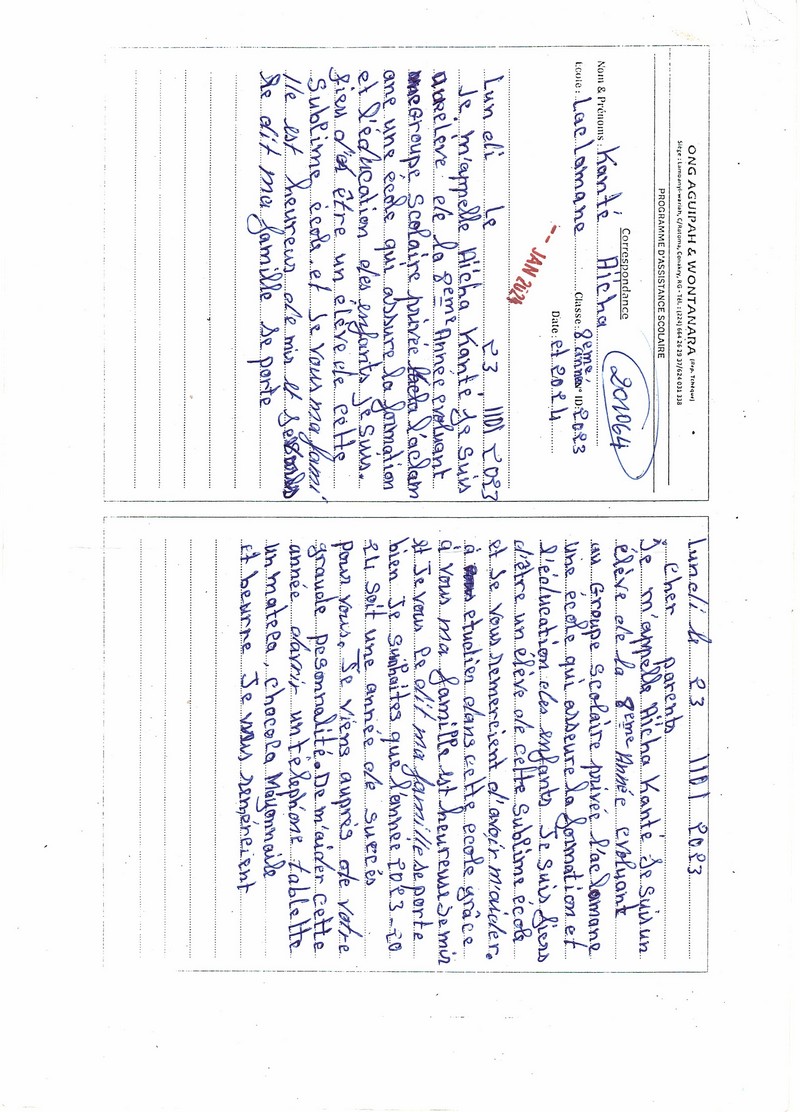 ONG AGUIPAH & WONTANARA (Rep. Trinqué)
Siège : Lambanyi-wariah, C/Ratoma, Conakry, RG - Tél. : (224) 664 26 29 37/624 031 338
PROGRAMME D'ASSISTANCE SCOLAIRE
Correspondance
201064
Nom & Prénoms : Kanté Aïcha
Ecole : Laclamane Classe : 8ème année ID: 2023
Date : et 2024
-- JAN 2024
Lundi le 23 1101 2023
Je m'appelle Aïcha Kanté Je Suis
élève de la 8ème Année evoluant
Groupe Scolaire privée l'aclam
ane une école qui assure la formation
et l'éducation des enfants Je suis.
fiers d'être un élève de cette
Sublime école. et Je vous ma fami
lle est heureus de mir et
Je dit ma famille se porte
Lundi le 23 1101 2023
Cher parents
Je m'appelle Aïcha Kanté Je Suis un
élève de la 8ème Année evoluant
au Groupe Scolaire privée l'aclamane
une école qui asseure la formation et
l'éducation des enfants Je Suis fiers
d'être un élève de cette Sublime école
et Je vous remercient d'avoir m'aider.
à etudien dans cette ecole grâce
à vous ma famille est heureuse de mir
et Je vous le dit ma famille se porte
bien Je Suhaites que l'année 2023-20
24 Soit une année de succès
Pour vous. Je viens auprès de votre
grande pesonnalité. De m'aider cette
année d'avoir un téléphone tablette
un matela, chocola Mayonnaile
et beurne Je vous remércient